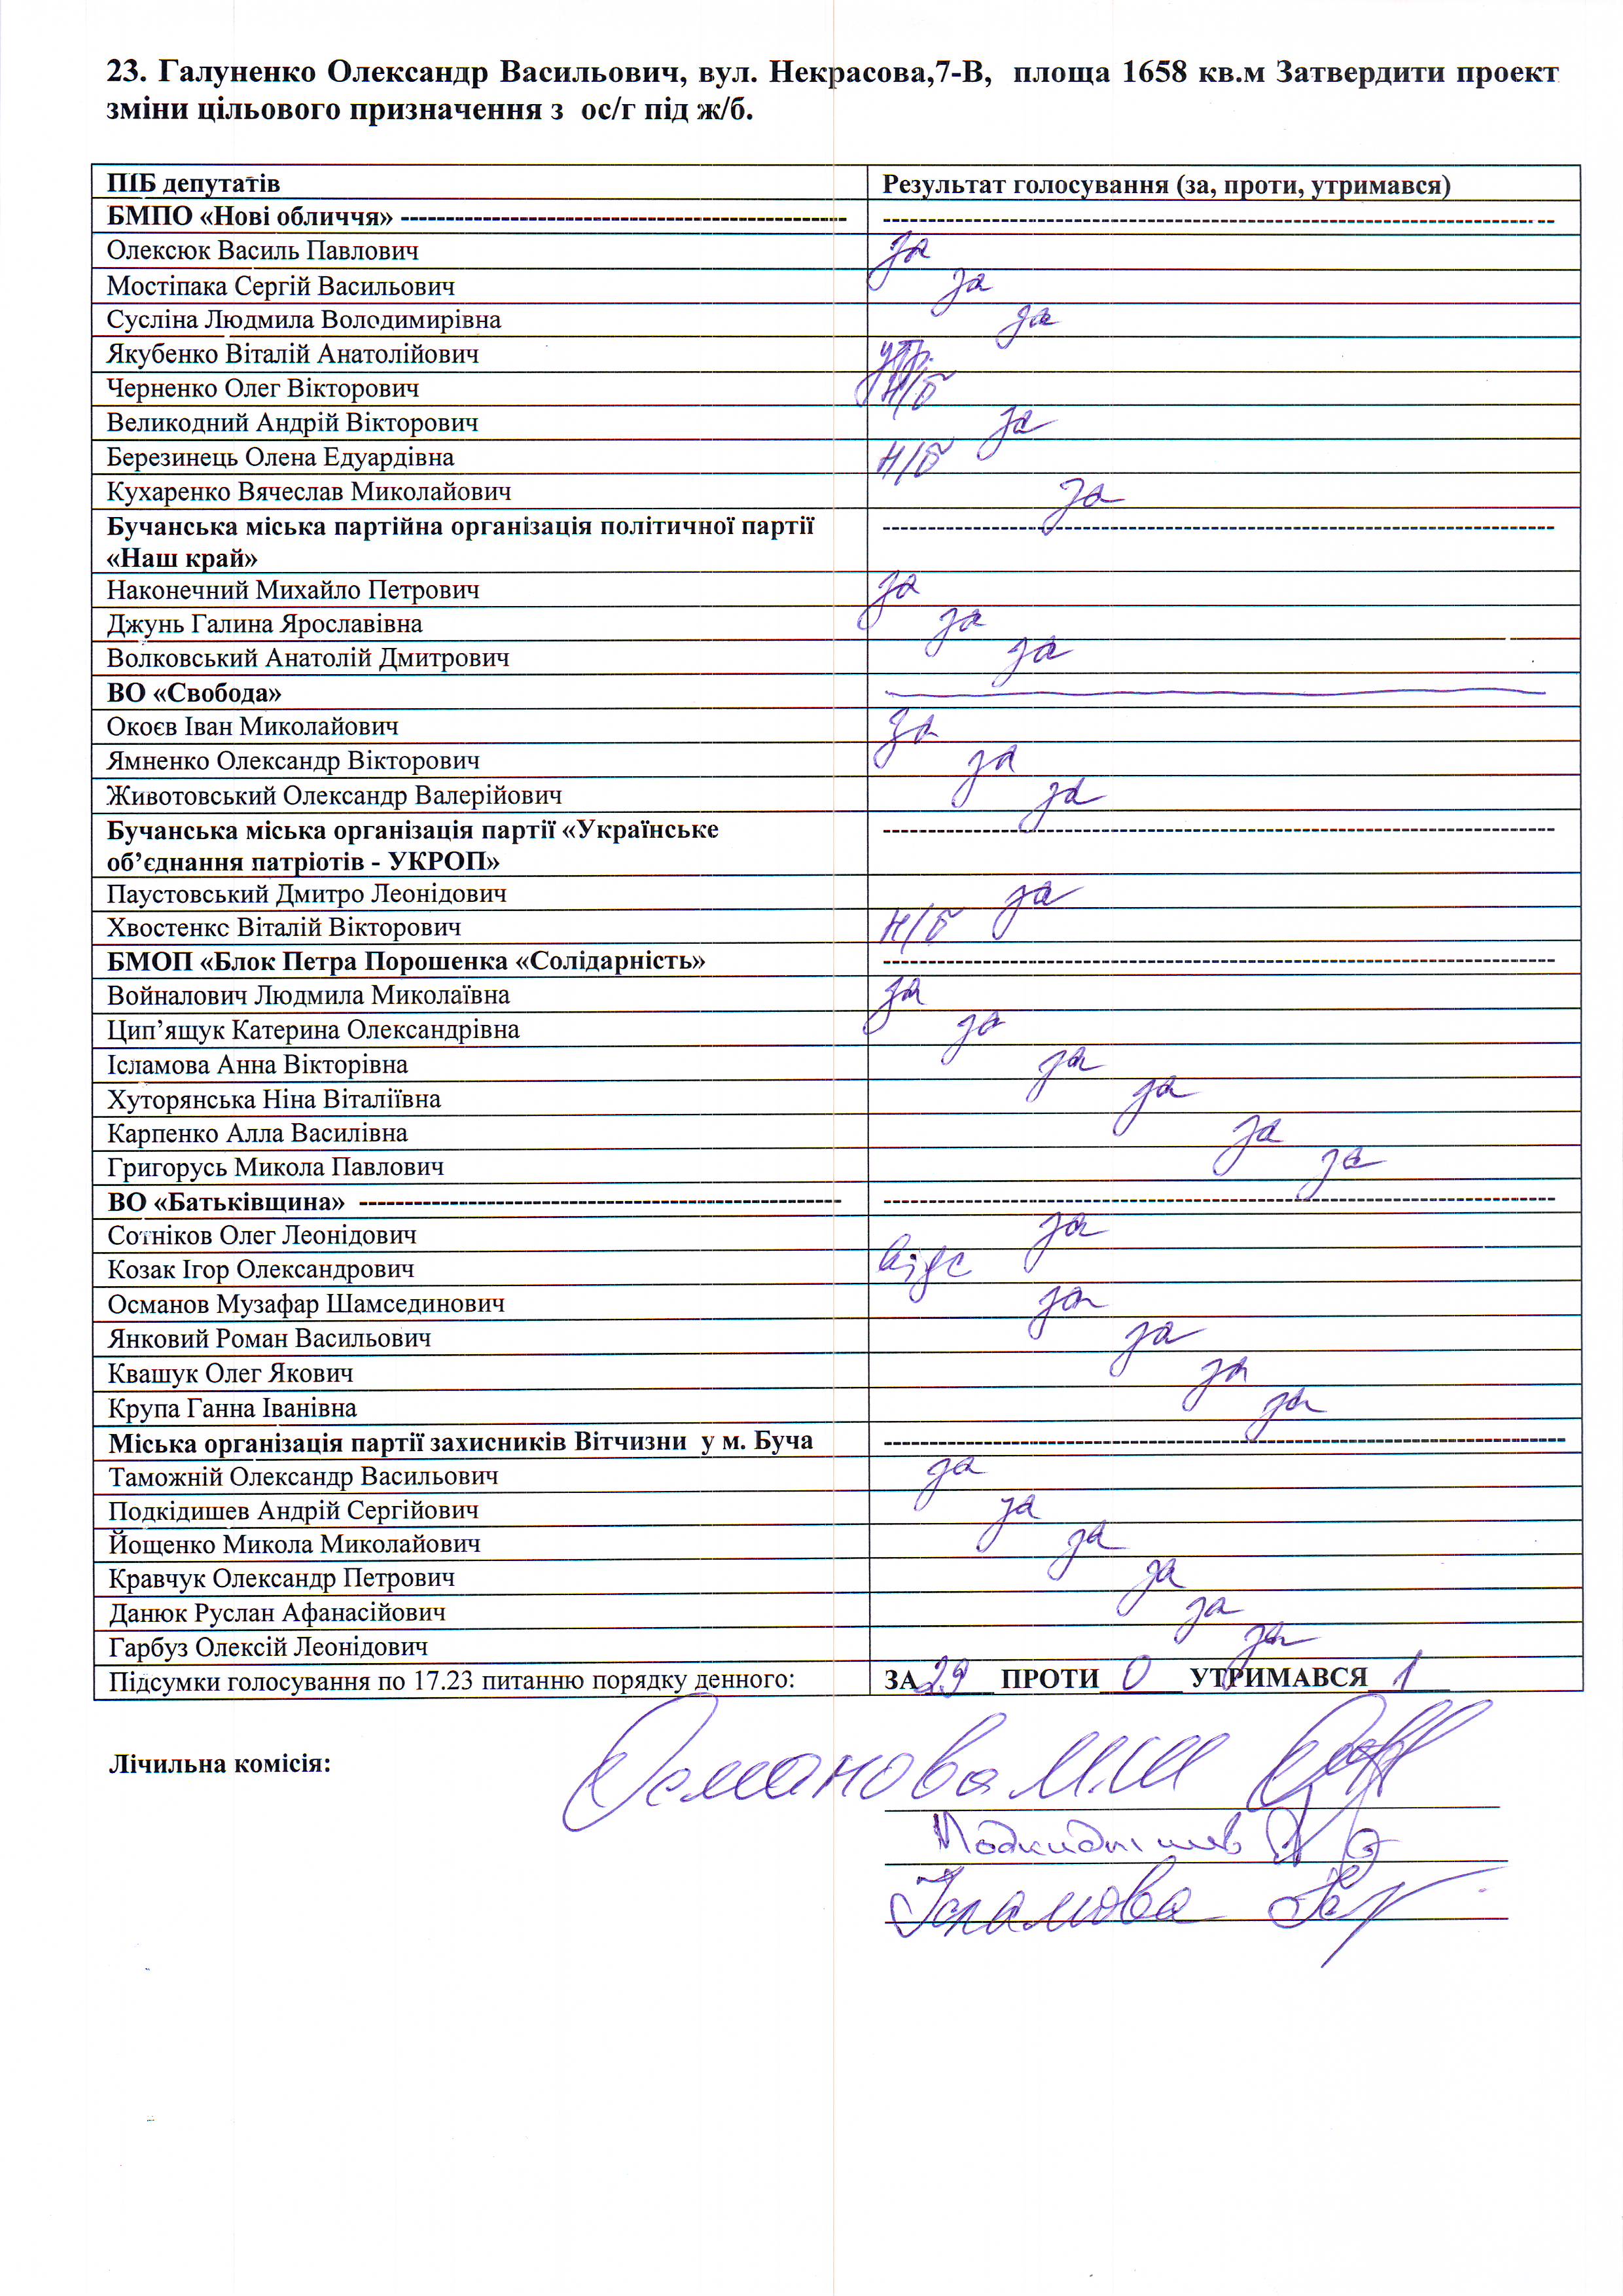 23. Галуненко Олександр Васильович, вул. Некрасова,7-В, площа 1658 кв.м Затвердити проект
зміни цільового призначення з ос/г під ж/б.
ПІБ депутатів Результат голосування (за, проти, утримався)
БМПО «Нові обличчя» ------------------------------------------------- --------------------------------------------------------------------------
Олексюк Василь Павлович за
Мостіпака Сергій Васильович за
Сусліна Людмила Володимирівна за
Якубенко Віталій Анатолійович утр.
Черненко Олег Вікторович н/б
Великодний Андрій Вікторович за
Березинець Олена Едуардівна н/б
Кухаренко Вячеслав Миколайович за
Бучанська міська партійна організація політичної партії --------------------------------------------------------------------------
«Наш край»
Наконечний Михайло Петрович за
Джунь Галина Ярославівна за
Волковський Анатолій Дмитрович за
ВО «Свобода»
Окоєв Іван Миколайович за
Ямненко Олександр Вікторович за
Животовський Олександр Валерійович за
Бучанська міська організація партії «Українське --------------------------------------------------------------------------
об’єднання патріотів - УКРОП»
Паустовський Дмитро Леонідович за
Хвостенкс Віталій Вікторович н/б
БМОП «Блок Петра Порошенка «Солідарність» --------------------------------------------------------------------------
Войналович Людмила Миколаївна за
Цип’ящук Катерина Олександрівна за
Ісламова Анна Вікторівна за
Хуторянська Ніна Віталіївна за
Карпенко Алла Василівна за
Григорусь Микола Павлович за
ВО «Батьківщина» ----------------------------------------------------- --------------------------------------------------------------------------
Сотніков Олег Леонідович за
Козак Ігор Олександрович відс
Османов Музафар Шамсединович за
Янковий Роман Васильович за
Квашук Олег Якович за
Крупа Ганна Іванівна за
Міська організація партії захисників Вітчизни у м. Буча ---------------------------------------------------------------------------
Таможній Олександр Васильович за
Подкідишев Андрій Сергійович за
Йощенко Микола Миколайович за
Кравчук Олександр Петрович за
Данюк Руслан Афанасійович за
Гарбуз Олексій Леонідович за
Підсумки голосування по 17.23 питанню порядку денного: ЗА 29 ПРОТИ 0 УТРИМАВСЯ 1
Лічильна комісія: Османова М.Ш
Подкидышев
Ісламова